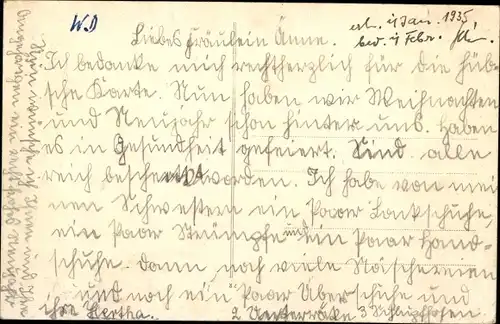 W.D
erh. 4 Jan. 1935
bed. 4 Febr.
Liebes Fräulein Änne.
Ich bedanke mich recht herzlich für die hüb-
sche Karte. Nun haben wir Weihnachten
und Neujahr schon hinter uns. Haben
es in Gesundheit gefeiert. Sind alle
reich beschert worden. Ich habe von mei-
nen Schwestern ein Paar Lackschuhe,
ein Paar Strümpfe und ein Paar Hand-
schuhe. Dann noch viele Näschereien
und noch ein Paar Überschuhe und
2 Unterröcke 3 Schlüpfhosen
ihre Hertha.